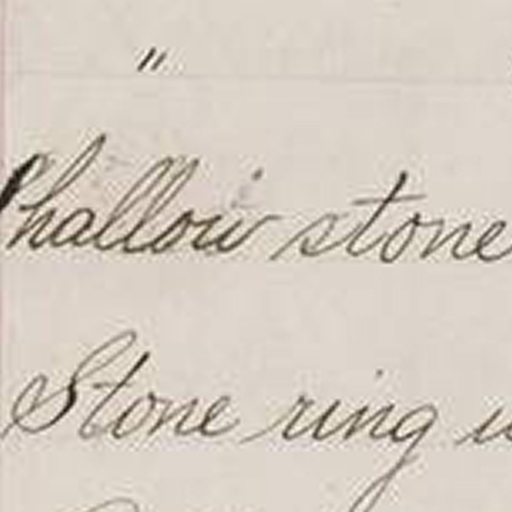 "
Shallow stone
Stone ring